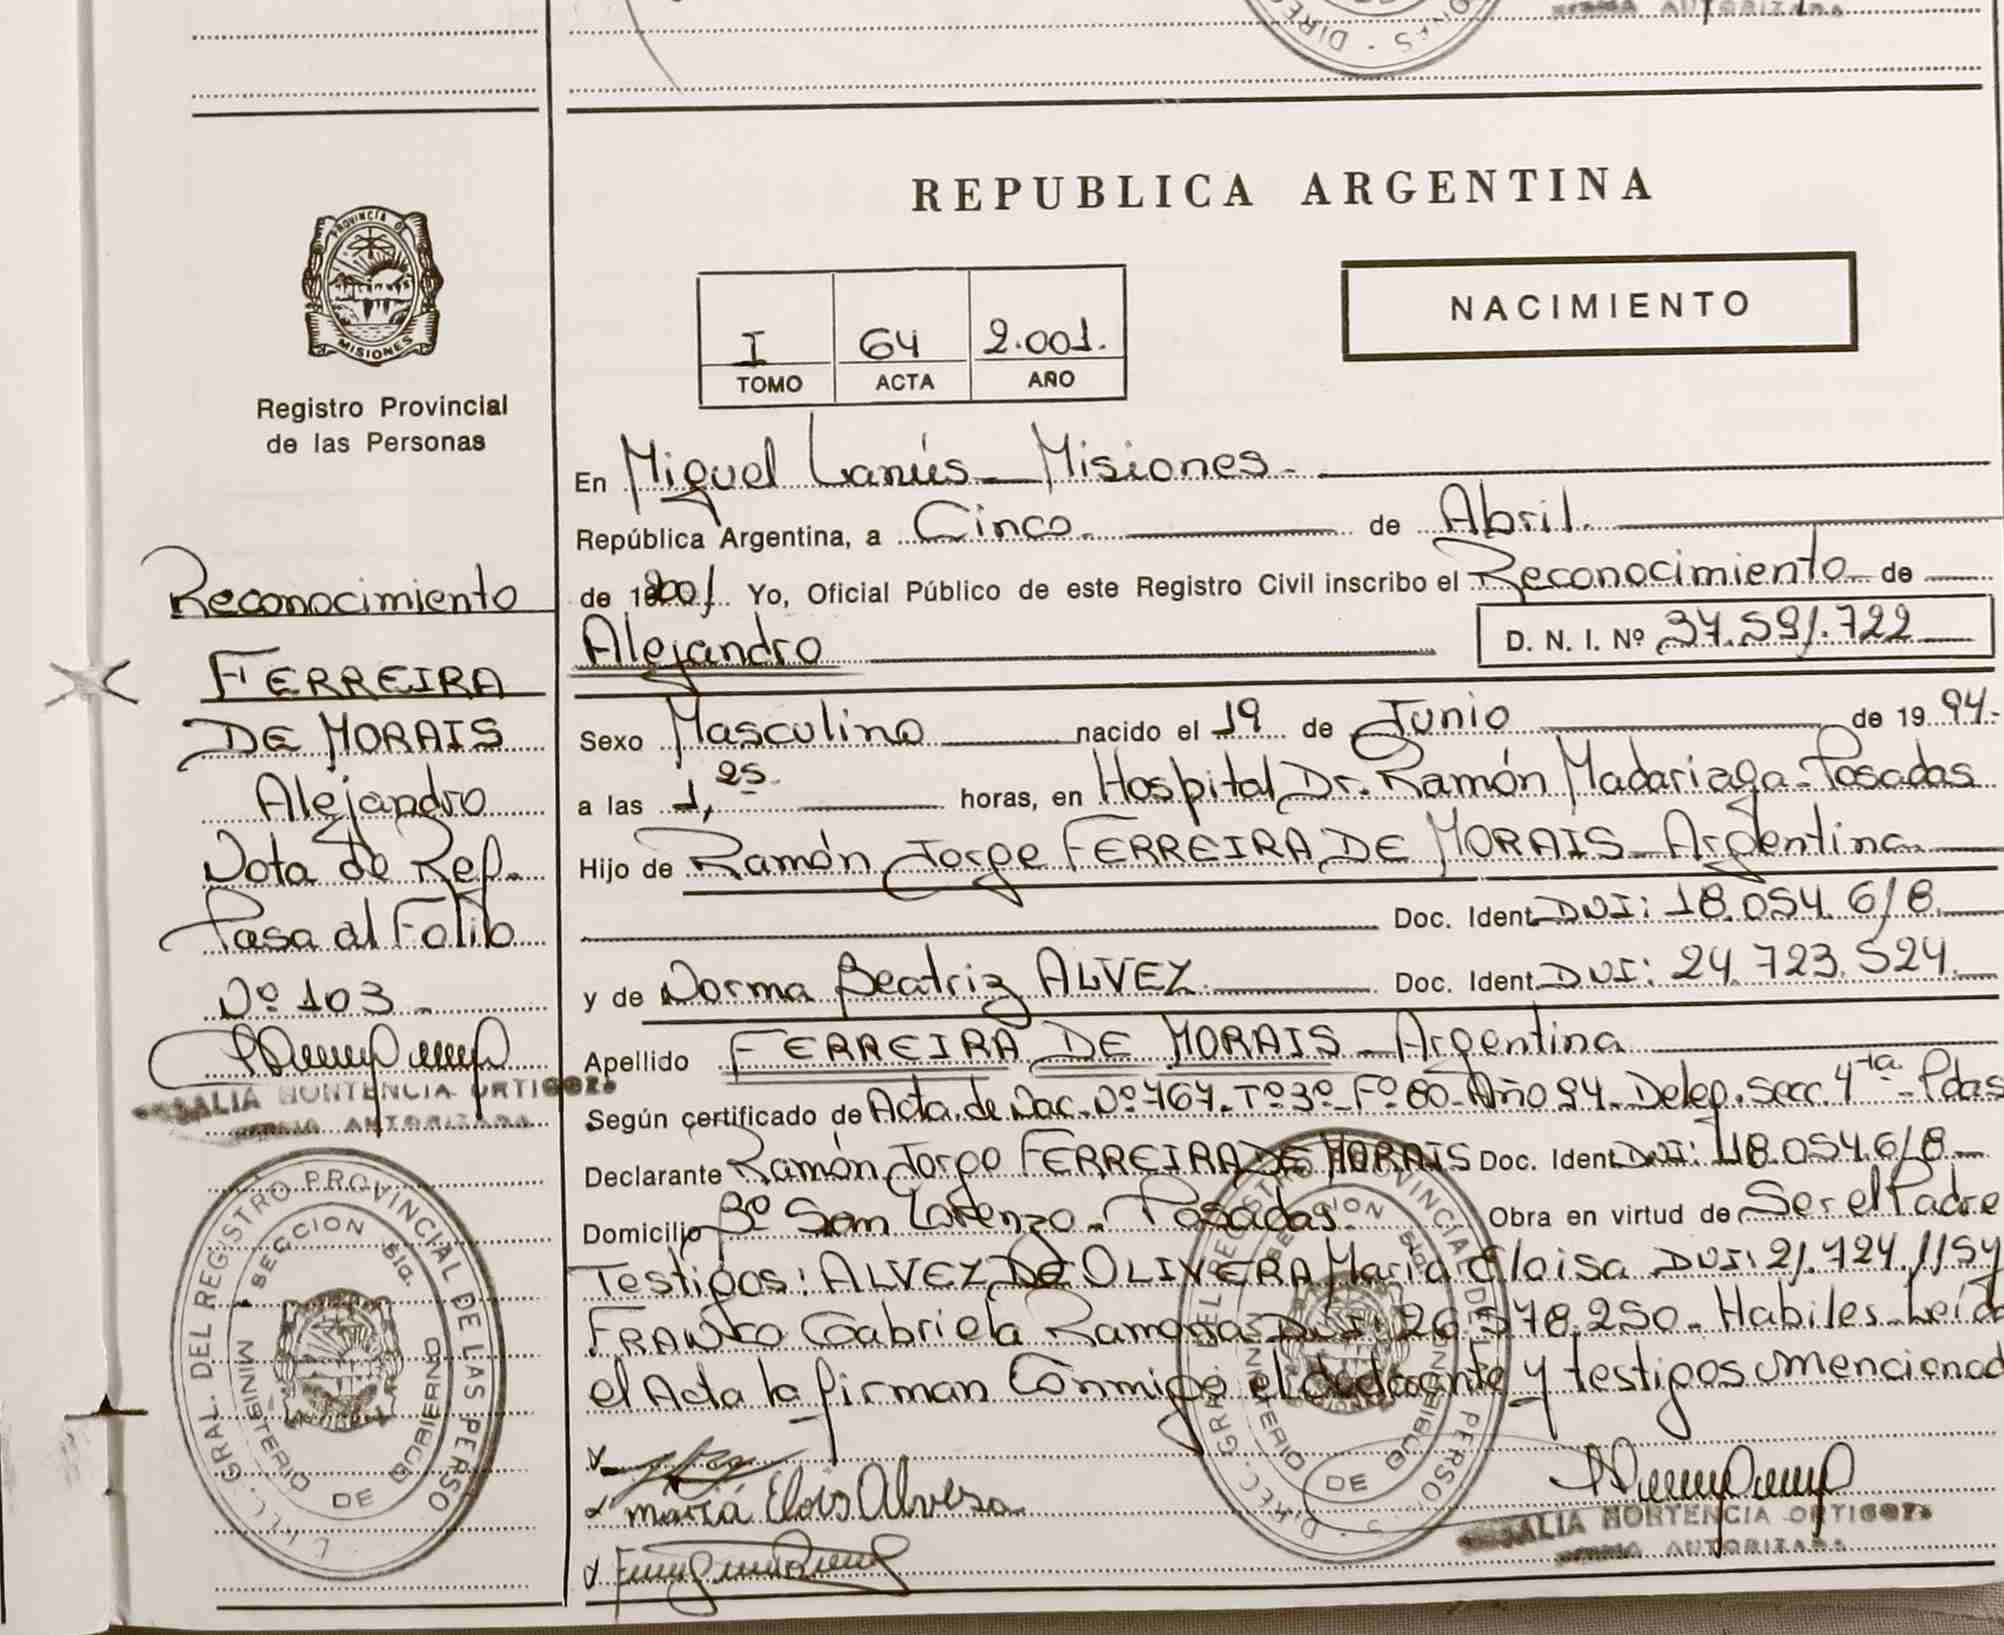 FIRMA AUTORIZADA
REPUBLICA ARGENTINA
PROVINCIA DE
MISIONES
Registro Provincial
de las Personas
I 64 2.001.
TOMO ACTA AÑO
NACIMIENTO
En Miguel Lanús - Misiones.
República Argentina, a Cinco. de Abril.
de 2001 Yo, Oficial Público de este Registro Civil inscribo el Reconocimiento de
Alejandro D. N. I. Nº 37.591.722
Sexo Masculino nacido el 19 de Junio de 1994.
a las 1,25 horas, en Hospital Dr. Ramón Madariaga - Posadas
Hijo de Ramón Jorge FERREIRA DE MORAIS - Argentina
Doc. Ident. DNI: 18.054.618
y de Norma Beatriz ALVEZ. Doc. Ident. DNI: 24.723.524.
Apellido FERREIRA DE MORAIS - Argentina
Según certificado de Acta de Nac. Nº 767 - Tº 3º - Fº 80 - Año 94 - Deleg. Secc. 4ta - Pdas
Declarante Ramón Jorge FERREIRA DE MORAIS Doc. Ident. DNI: 18.054.618
Domicilio Bº San Lorenzo - Posadas. Obra en virtud de Ser el Padre
Testigos: ALVEZ DE OLIVERA María Eloisa DNI: 21.724.1154
FRANCO Gabriela Ramona DNI: 26.378.250 - Habiles - Leida
el Acta la firman Conmigo el declarante y testigos mencionad
María Elois Alvesa
HORTENCIA ORTIGOZA
FIRMA AUTORIZADA
Reconocimiento
FERREIRA
DE MORAIS
Alejandro
Nota de Ref.
Pasa al Folio
Nº 103.
HORTENCIA ORTIGOZA
FIRMA AUTORIZADA
DIREC. GRAL. DEL REGISTRO PROVINCIAL DE LAS PERSO
SECCION 5ta.
MINISTERIO DE GOBIERNO
DIREC. GRAL. DEL REGISTRO PROVINCIAL DE LAS PERSO
SECCION 5ta.
MINISTERIO DE GOBIERNO